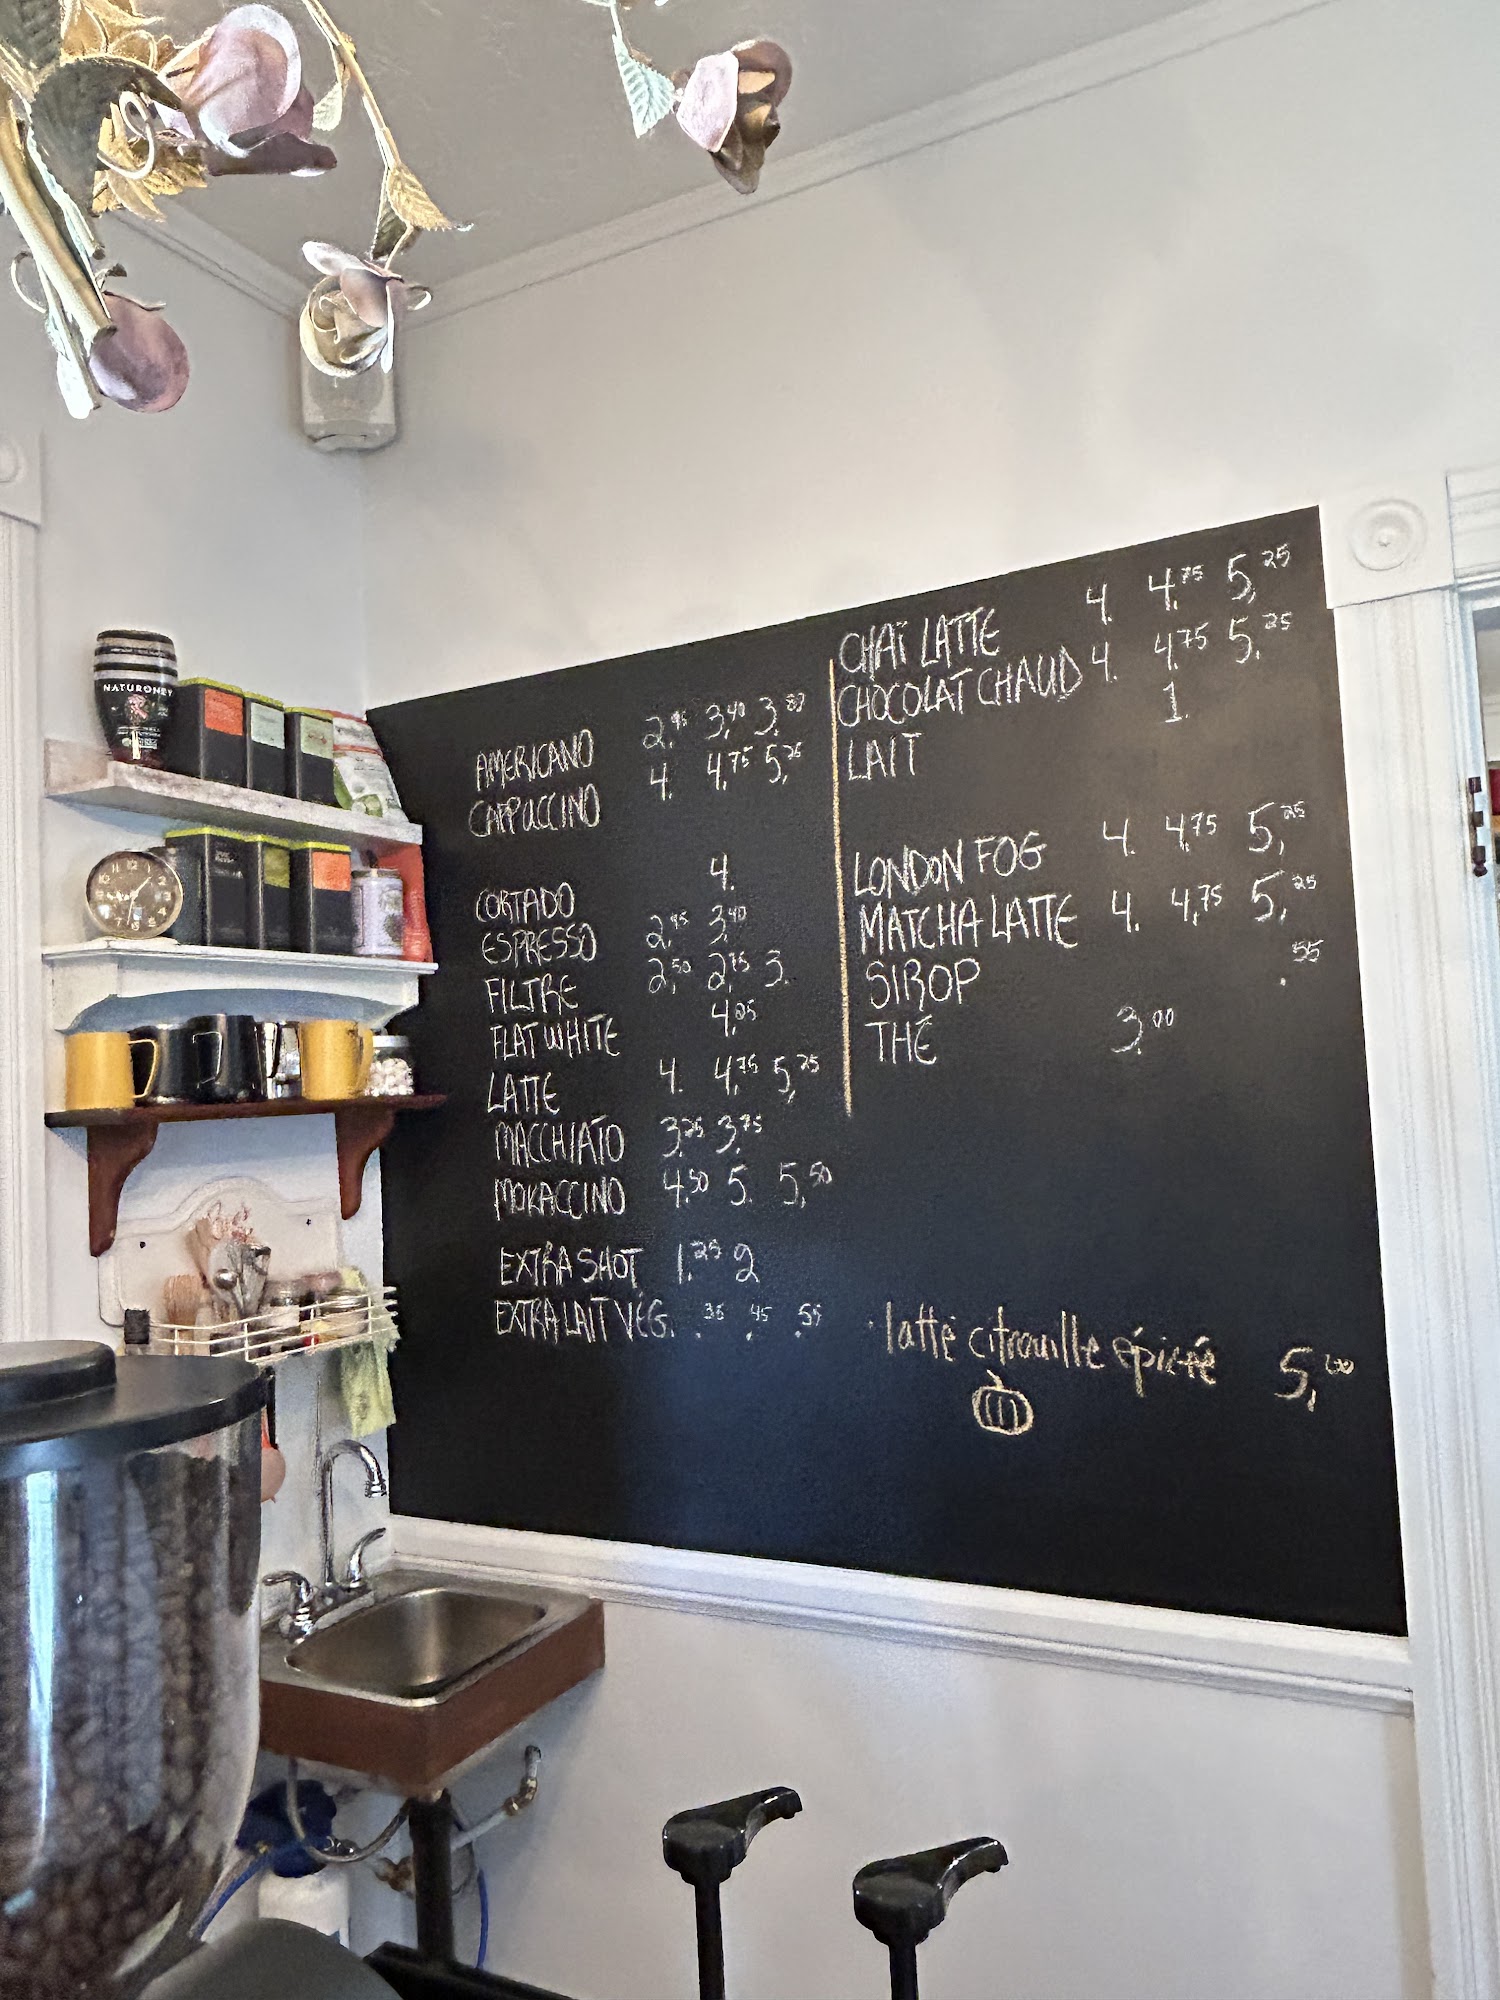 NATURONEY
AMERICANO 2.95 3.40 3.80
CAPPUCCINO 4. 4.75 5.25
CORTADO 4.
ESPRESSO 2.95 3.40
FILTRE 2.50 2.75 3.
FLAT WHITE 4.25
LATTE 4. 4.75 5.25
MACCHIATO 3.25 3.75
MOKACCINO 4.50 5. 5.50
EXTRA SHOT 1.25 2
EXTRA LAIT VÉG. .35 .45 .55
CHAÏ LATTE 4. 4.75 5.25
CHOCOLAT CHAUD 4. 4.75 5.25
LAIT 1.
LONDON FOG 4. 4.75 5.25
MATCHA LATTE 4. 4.75 5.25
SIROP .55
THÉ 3.00
latte citrouille épicée 5,00